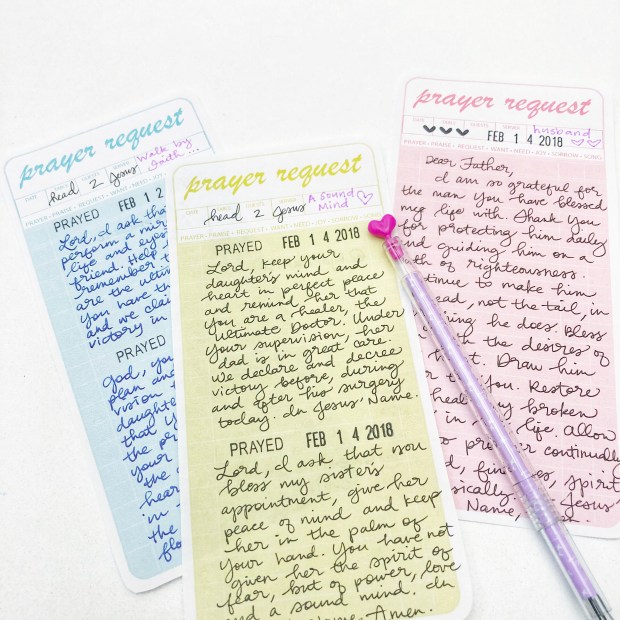 prayer request
head 2 Jesus
Walk by
faith...
PRAYED FEB 12
Lord, I ask that
perform a mir
life and eyes
friend. Help
remember t
are the ultim
You have th
and we clai
victory in
PRAYED
God, you
plan and
vision
daughte
that y
the pe
your
the
hear
in
the
flo
prayer request
head 2 Jesus
A Sound
Mind
PRAYER • PRAISE • REQUEST • WANT • NEED • JOY • SORROW
PRAYED FEB 14 2018
Lord, keep your
daughter's mind and
heart in perfect peace
and remind her that
You are a healer, the
Ultimate Doctor. Under
Your supervision, her
dad is in great care.
We declare and decree
victory before, during
and after his surgery
today. In Jesus' Name.
PRAYED FEB 14 2018
Lord, I ask that you
bless my sister's
appointment, give her
peace of mind and keep
her in the palm of
Your hand. You have not
given her the spirit of
fear, but of power, love
and a sound mind. In
Name, Amen.
prayer request
FEB 14 2018
husband
PRAYER • PRAISE • REQUEST • WANT • NEED • JOY • SORROW • SONG
Dear Father,
I am so grateful for
the man you have blessed
my life with. Thank You
for protecting him daily
and guiding him on a
of righteousness.
continue to make him
head, not the tail, in
he does. Bless
with the desires of
that. Draw him
You. Restore
heal, my broken
in, life. Allow
to prosper continually
spirit
Jesus'
Name,